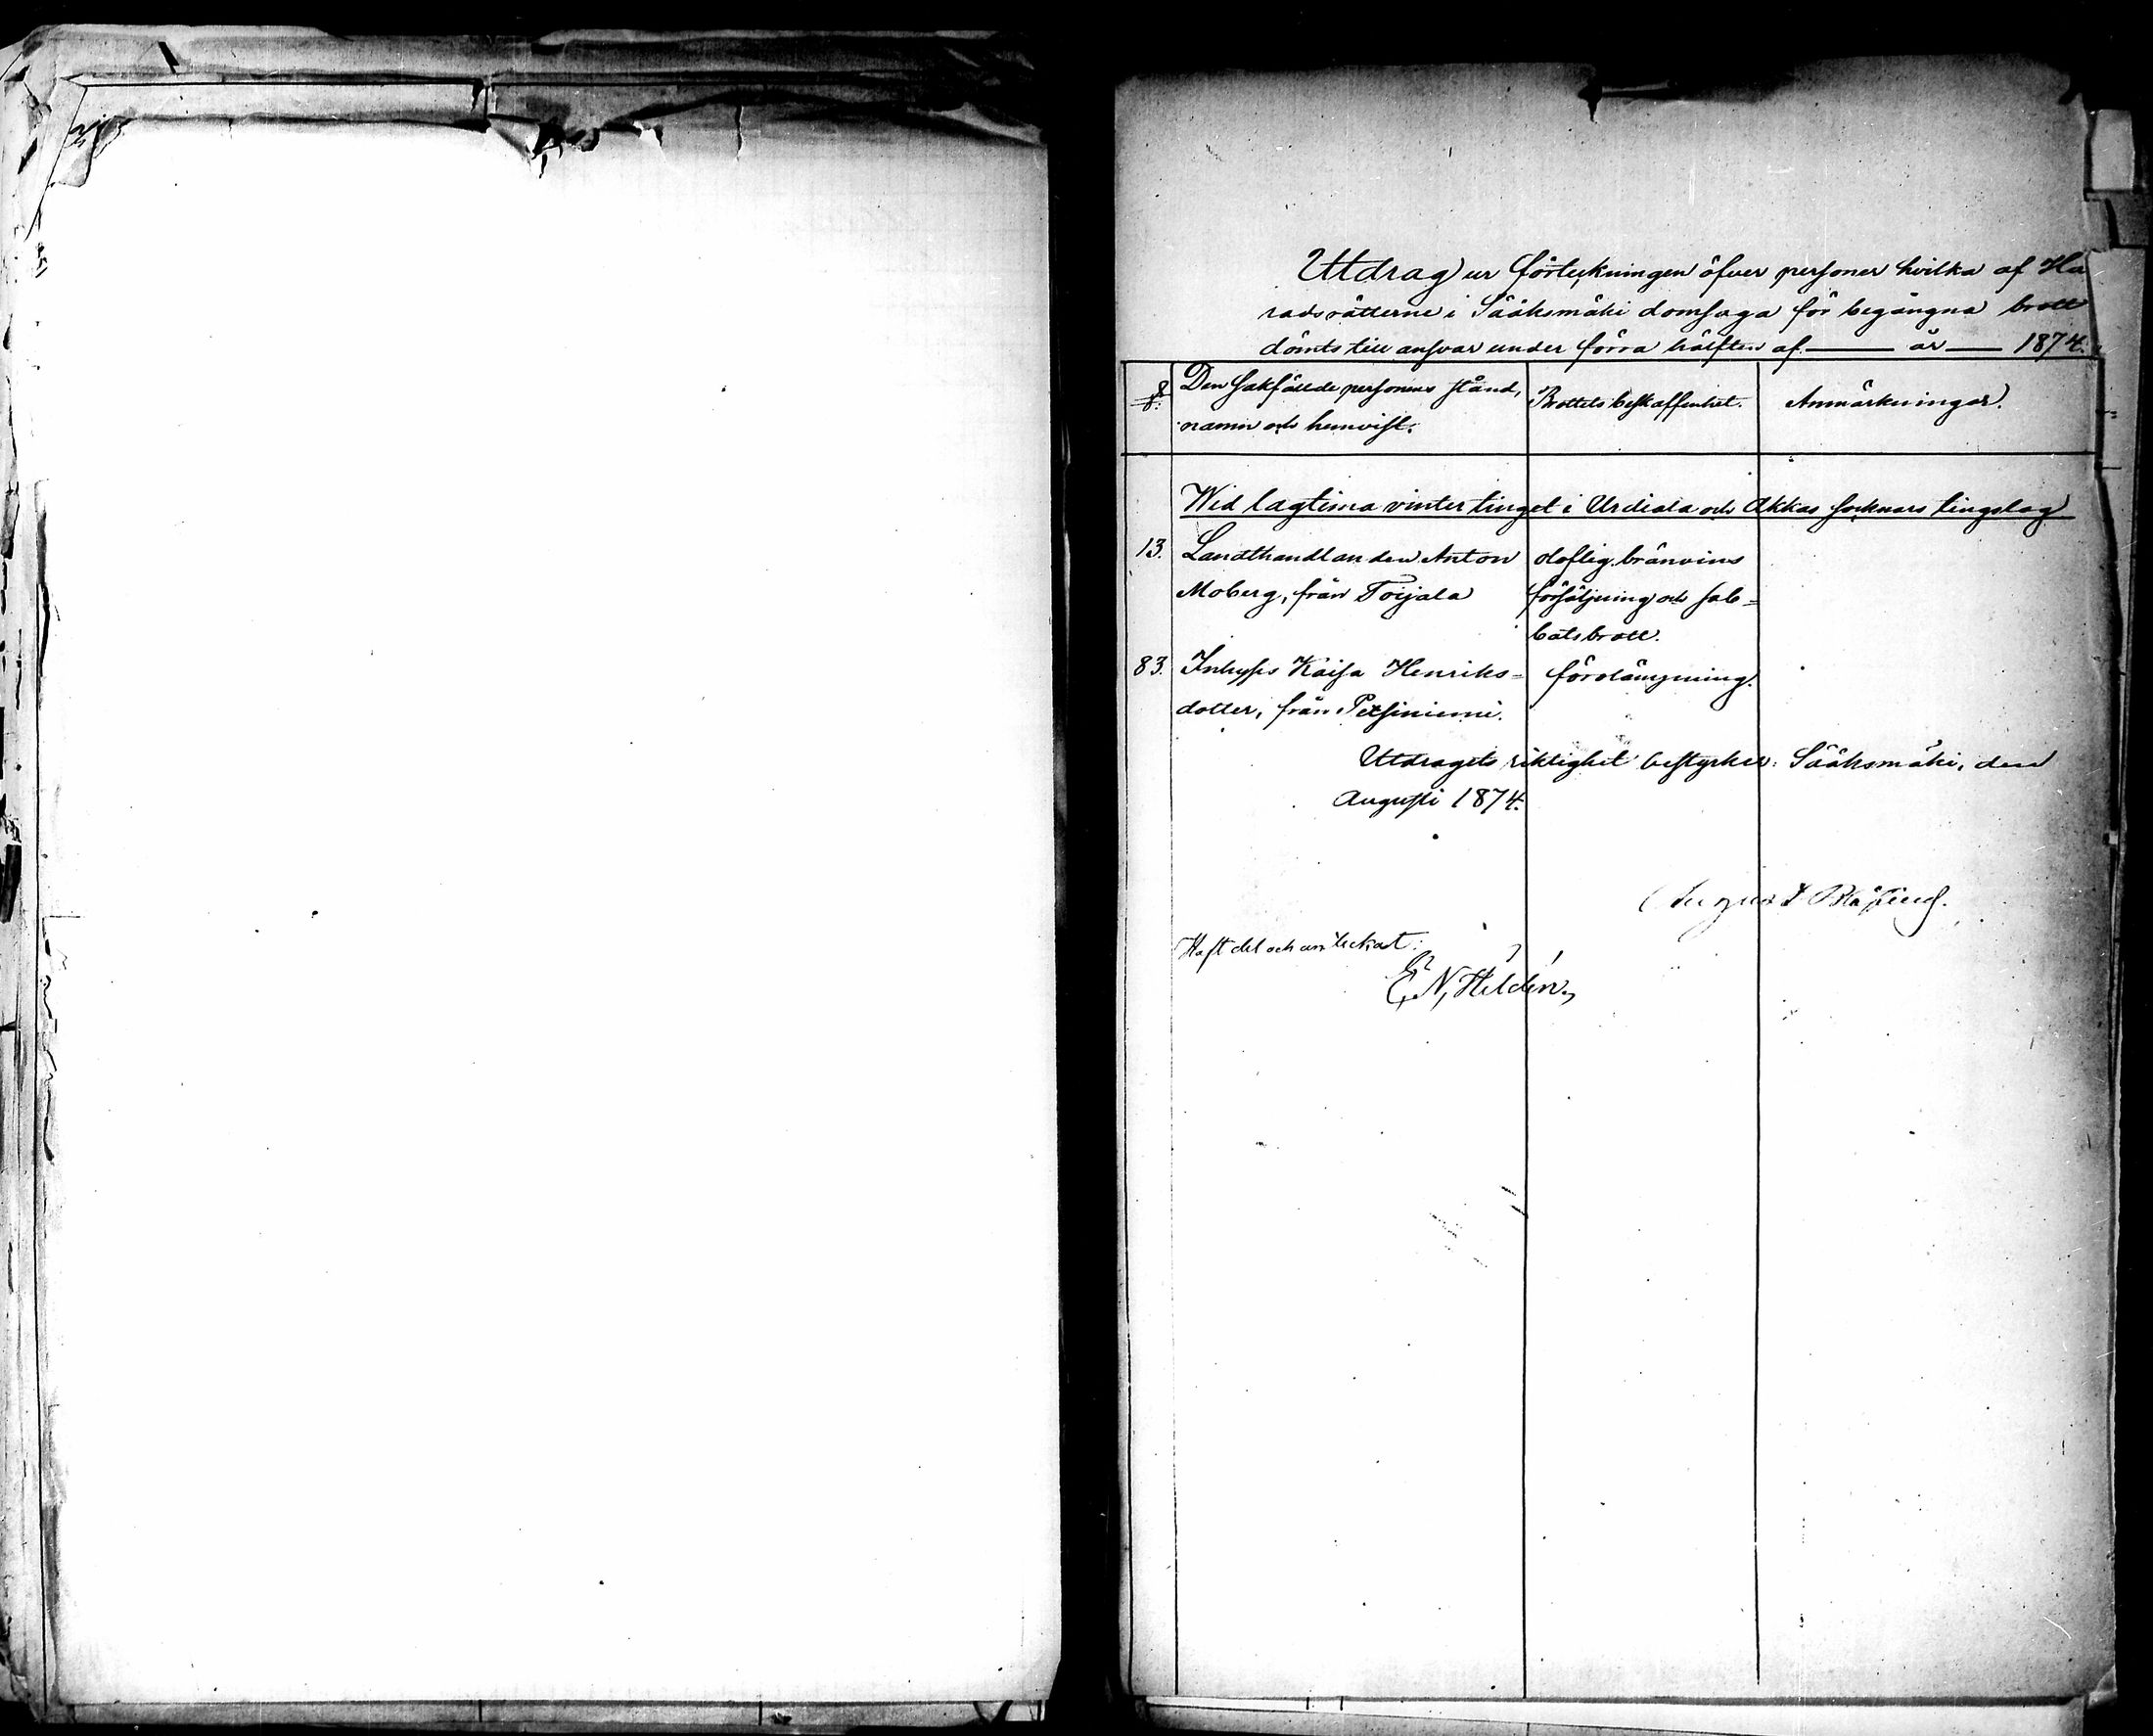 Utdrag ur förteckningen öfver personer hvilka af Hä
radsrätterne i Sääksmäki domsaga för begångna brott
dömts till ansvar under förra hälften af — år — 1874.
Den sakfällde personens stånd,
namn och hemvist.
Brottets beskaffenhet.
Anmärkningar.
Wid lagtima vintertinget i Urdiala och Akkas socknars tingslag
13. Landthandlanden Anton
Moberg, från Toijala
oloflig bränvins
försäljning och sab=
batsbrott.
83. Inhyses Kaisa Henriks=
dotter, från
förolämpning.
Utdragets riktighet bestyrker: Sääksmäki, den
Augusti 1874.
August
Haft del och antecknat:
E. N. Heldén,